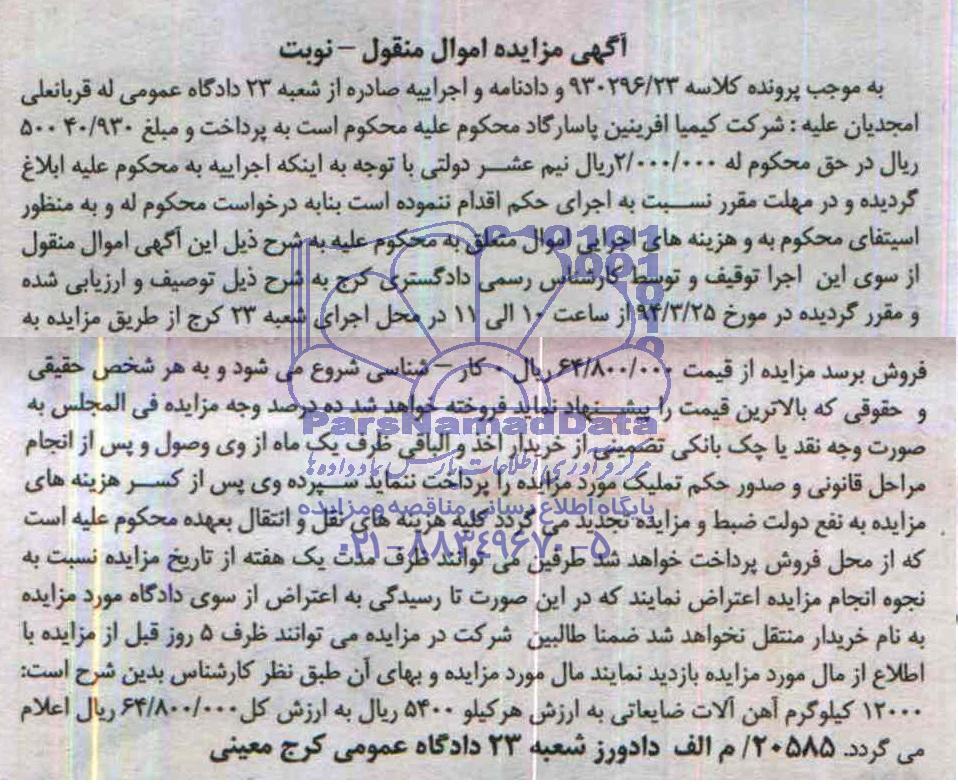 آگهی مزایده اموال منقول – نوبت
به موجب پرونده کلاسه ۹۳۰۲۹۶/۲۳ و دادنامه و اجراییه صادره از شعبه ۲۳ دادگاه عمومی له قربانعلی
امجدیان علیه : شرکت کیمیا افرینین پاسارگاد محکوم علیه محکوم است به پرداخت و مبلغ ۴۰/۹۳۰ ۵۰۰
ریال در حق محکوم له ۲/۰۰۰/۰۰۰ریال نیم عشر دولتی با توجه به اینکه اجراییه به محکوم علیه ابلاغ
گردیده و در مهلت مقرر نسبت به اجرای حکم اقدام ننموده است بنابه درخواست محکوم له و به منظور
اسیتفای محکوم به و هزینه های اجرایی اموال متعلق به محکوم علیه به شرح ذیل این آگهی اموال منقول
از سوی این اجرا توقیف و توسط کارشناس رسمی دادگستری کرج به شرح ذیل توصیف و ارزیابی شده
و مقرر گردیده در مورخ ۹۴/۳/۲۵ از ساعت ۱۰ الی ۱۱ در محل اجرای شعبه ۲۳ کرج از طریق مزایده به
فروش برسد مزایده از قیمت ۶۴/۸۰۰/۰۰۰ ریال ۰ کار – شناسی شروع می شود و به هر شخص حقیقی
و حقوقی که بالاترین قیمت را پیشنهاد نماید فروخته خواهد شد ده درصد وجه مزایده فی المجلس به
ParsNamadData
صورت وجه نقد یا چک بانکی تضمینی از خریدار اخذ و الباقی ظرف یک ماه از وی وصول و پس از انجام
مرکز فرآوری اطلاعات پارس نماد داده ها
مراحل قانونی و صدور حکم تملیک مورد مزایده را پرداخت ننماید سپرده وی پس از کسر هزینه های
پایگاه اطلاع رسانی مناقصه و مزایده
مزایده به نفع دولت ضبط و مزایده تجدید می گردد کلیه هزینه های نقل و انتقال بعهده محکوم علیه است
۰۲۱-۸۸۳۴۹۶۷۰-۵
که از محل فروش پرداخت خواهد شد طرفین می توانند ظرف مدت یک هفته از تاریخ مزایده نسبت به
نجوه انجام مزایده اعتراض نمایند که در این صورت تا رسیدگی به اعتراض از سوی دادگاه مورد مزایده
به نام خریدار منتقل نخواهد شد ضمنا طالبین شرکت در مزایده می توانند ظرف ۵ روز قبل از مزایده با
اطلاع از مال مورد مزایده بازدید نمایند مال مورد مزایده و بهای آن طبق نظر کارشناس بدین شرح است:
۱۲۰۰۰ کیلوگرم آهن آلات ضایعاتی به ارزش هرکیلو ۵۴۰۰ ریال به ارزش کل ۶۴/۸۰۰/۰۰۰ ریال اعلام
می گردد. ۲۰۵۸۵/ م الف دادورز شعبه ۲۳ دادگاه عمومی کرج معینی